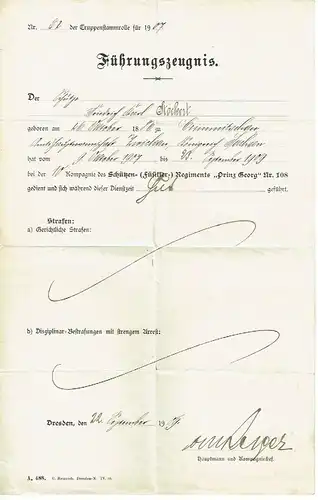 Nr. 20 der Truppenstammrolle für 1907
Führungszeugnis.
Der Schütze
Karl
geboren am 26. Oktober 18 zu Crimmitschau
Amtshauptmannschaft Zwickau Königreich Sachsen
hat vom Oktober 1907 bis 22. September 1909
bei der 10. Kompagnie des Schützen- (Füsilier-) Regiments „Prinz Georg“ Nr. 108
gedient und sich während dieser Dienstzeit Gut geführt.
Strafen:
a) Gerichtliche Strafen:
b) Disziplinar-Bestrafungen mit strengem Arrest:
Dresden, den 22. September 1909.
Hauptmann und Kompagniechef.
A. 488.